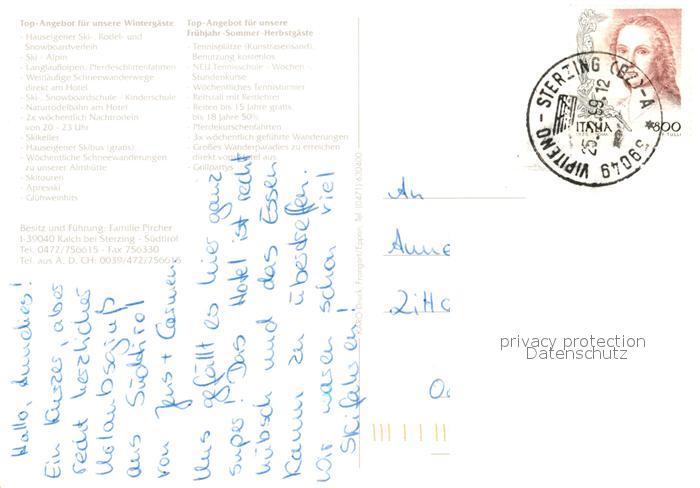 Top-Angebot für unsere Wintergäste
- Hauseigener Ski-, Rodel- und
Snowboardverleih
- Ski - Alpin
- Langlaufloipen, Pferdeschlittenfahrten
- Weitläufige Schneewanderwege
direkt am Hotel
- Ski-, Snowboardschule - Kinderschule
- Naturrodelbahn am Hotel
- 2x wöchentlich Nachtrodeln
von 20 - 23 Uhr
- Skikeller
- Hauseigener Skibus (gratis)
- Wöchentliche Schneewanderungen
zu unserer Almhütte
- Skitouren
- Apresski
- Glühweinhits
Top-Angebot für unsere
Frühjahr-Sommer-Herbstgäste
- Tennisplätze (Kunstrasensand),
Benutzung kostenlos
- NEU Tennisschule - Wochen
Stundenkurse
- Wöchentliches Tennisturnier
- Reitstall mit Reitlehrer
- Reiten bis 15 Jahre gratis,
bis 18 Jahre 50%
- Pferdekutschenfahrten
- 3x wöchentlich geführte Wanderungen
- Großes Wanderparadies zu erreichen
direkt vom Hotel aus
- Grillpartys
Besitz und Führung: Familie Pircher
I-39040 Kalch bei Sterzing - Südtirol
Tel. 0472/756615 - Fax 756330
Tel. aus A, D, CH: 0039/472/756615
Hallo,
Ein kurzer, aber
recht herzlicher
Urlaubsgruß
aus Südtirol
von Jens + Carmen
Uns gefällt es hier ganz
super! Das Hotel ist recht
hübsch und das Essen
kaum zu übertreffen.
Wir waren schon viel
Skifahren!
Druck Frangart/Eppan, Tel. (0471) 630400
ITALIA
800
39049 VIPITENO - STERZING (BZ) - A
An
Anne
Zitt
privacy protection
Datenschutz